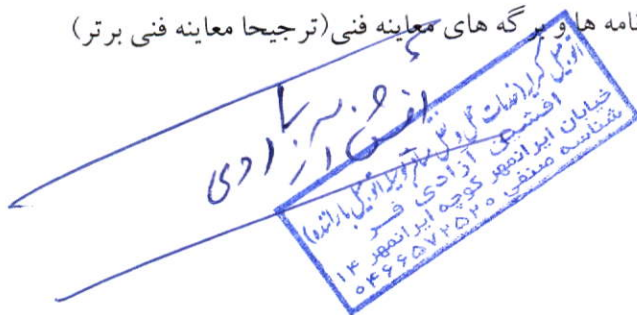 نامه ها و برگه های معاینه فنی(ترجیحا معاینه فنی برتر)
افشین آزادی
اتومبیل کرایه (خدمات حمل و نقل مسافر توسط اتومبیل با راننده)
افشین آزادی فر
خیابان ایرانمهر کوچه ایرانمهر ۱۴
شناسه صنفی ۰۴۶۶۵۷۲۵۲۰